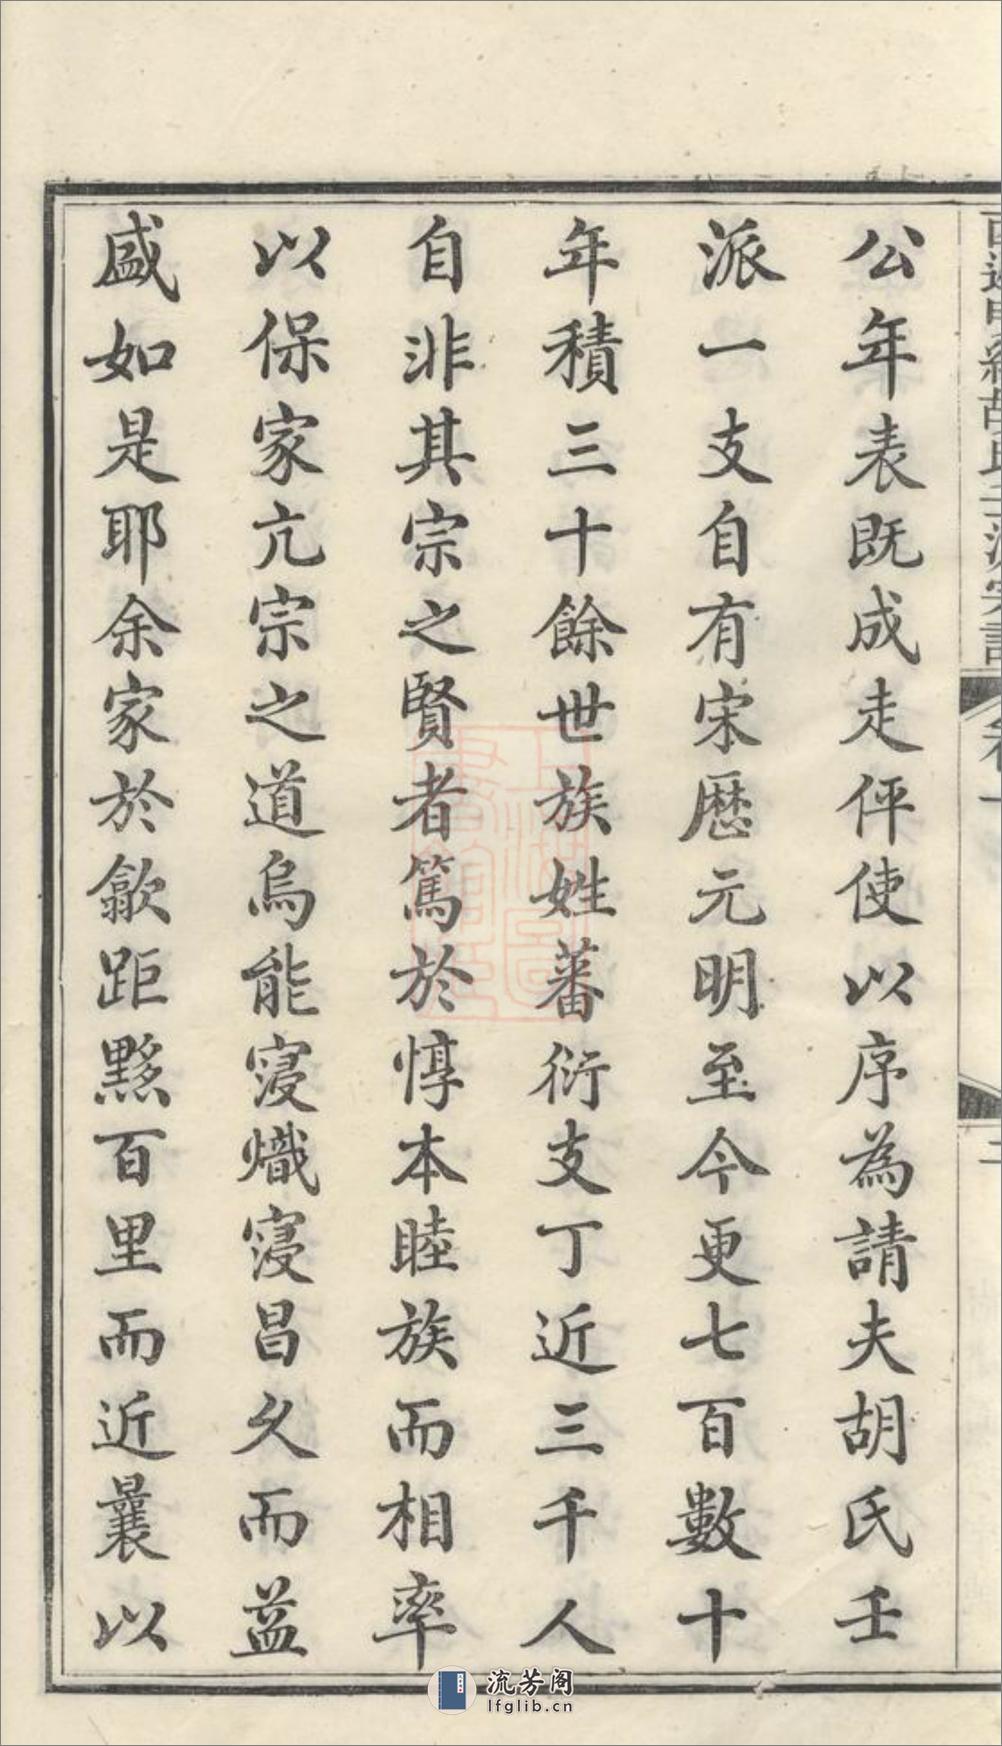 公年表既成走伻使以序為請夫胡氏壬
派一支自有宋歷元明至今更七百數十
年積三十餘世族姓蕃衍支丁近三千人
自非其宗之賢者篤於惇本睦族而相率
以保家亢宗之道烏能寖熾寖昌久而益
盛如是耶余家於歙距黟百里而近曩以
流芳阁
lfglib.cn